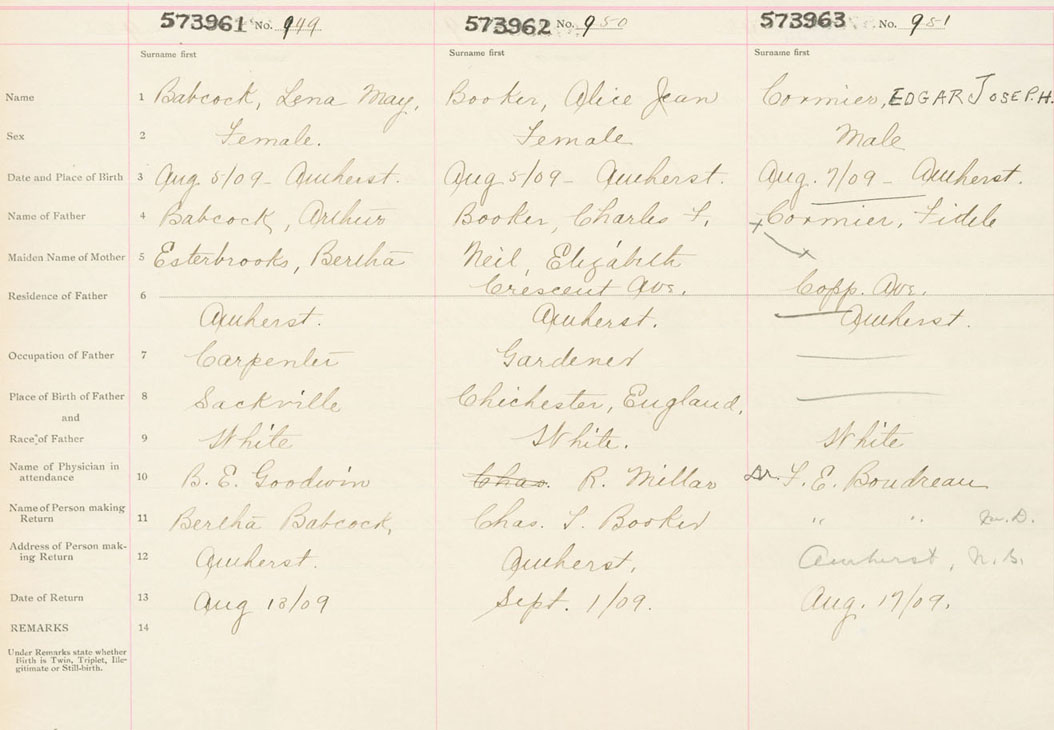 573961 No. 949 573962 No. 950 573963 No. 951
Surname first Surname first Surname first
Name 1 Babcock, Lena May, Booker, Alice Jean Cormier, EDGAR JOSEPH.
Sex 2 Female. Female Male
Date and Place of Birth 3 Aug 5/09 - Amherst. Aug 5/09 - Amherst. Aug. 7/09 - Amherst.
Name of Father 4 Babcock, Arthur Booker, Charles F. Cormier, Fidele
Maiden Name of Mother 5 Esterbrooks, Bertha Neil, Elizabeth
Crescent Ave. Copp. Ave.
Residence of Father 6
Amherst. Amherst. Amherst.
Occupation of Father 7 Carpenter Gardener
Place of Birth of Father 8 Sackville Chichester, England,
and
Race of Father 9 White White. White
Name of Physician in
attendance 10 B. E. Goodwin Chas. R. Millar Dr. F. E. Boudreau
Name of Person making
Return 11 Bertha Babcock, Chas. F. Booker " " M.D.
Address of Person mak-
ing Return 12 Amherst. Amherst, Amherst, N.S.
Date of Return 13 Aug 13/09 Sept. 1/09. Aug. 17/09.
REMARKS 14
Under Remarks state whether
Birth is Twin, Triplet, Ille-
gitimate or Still-birth.